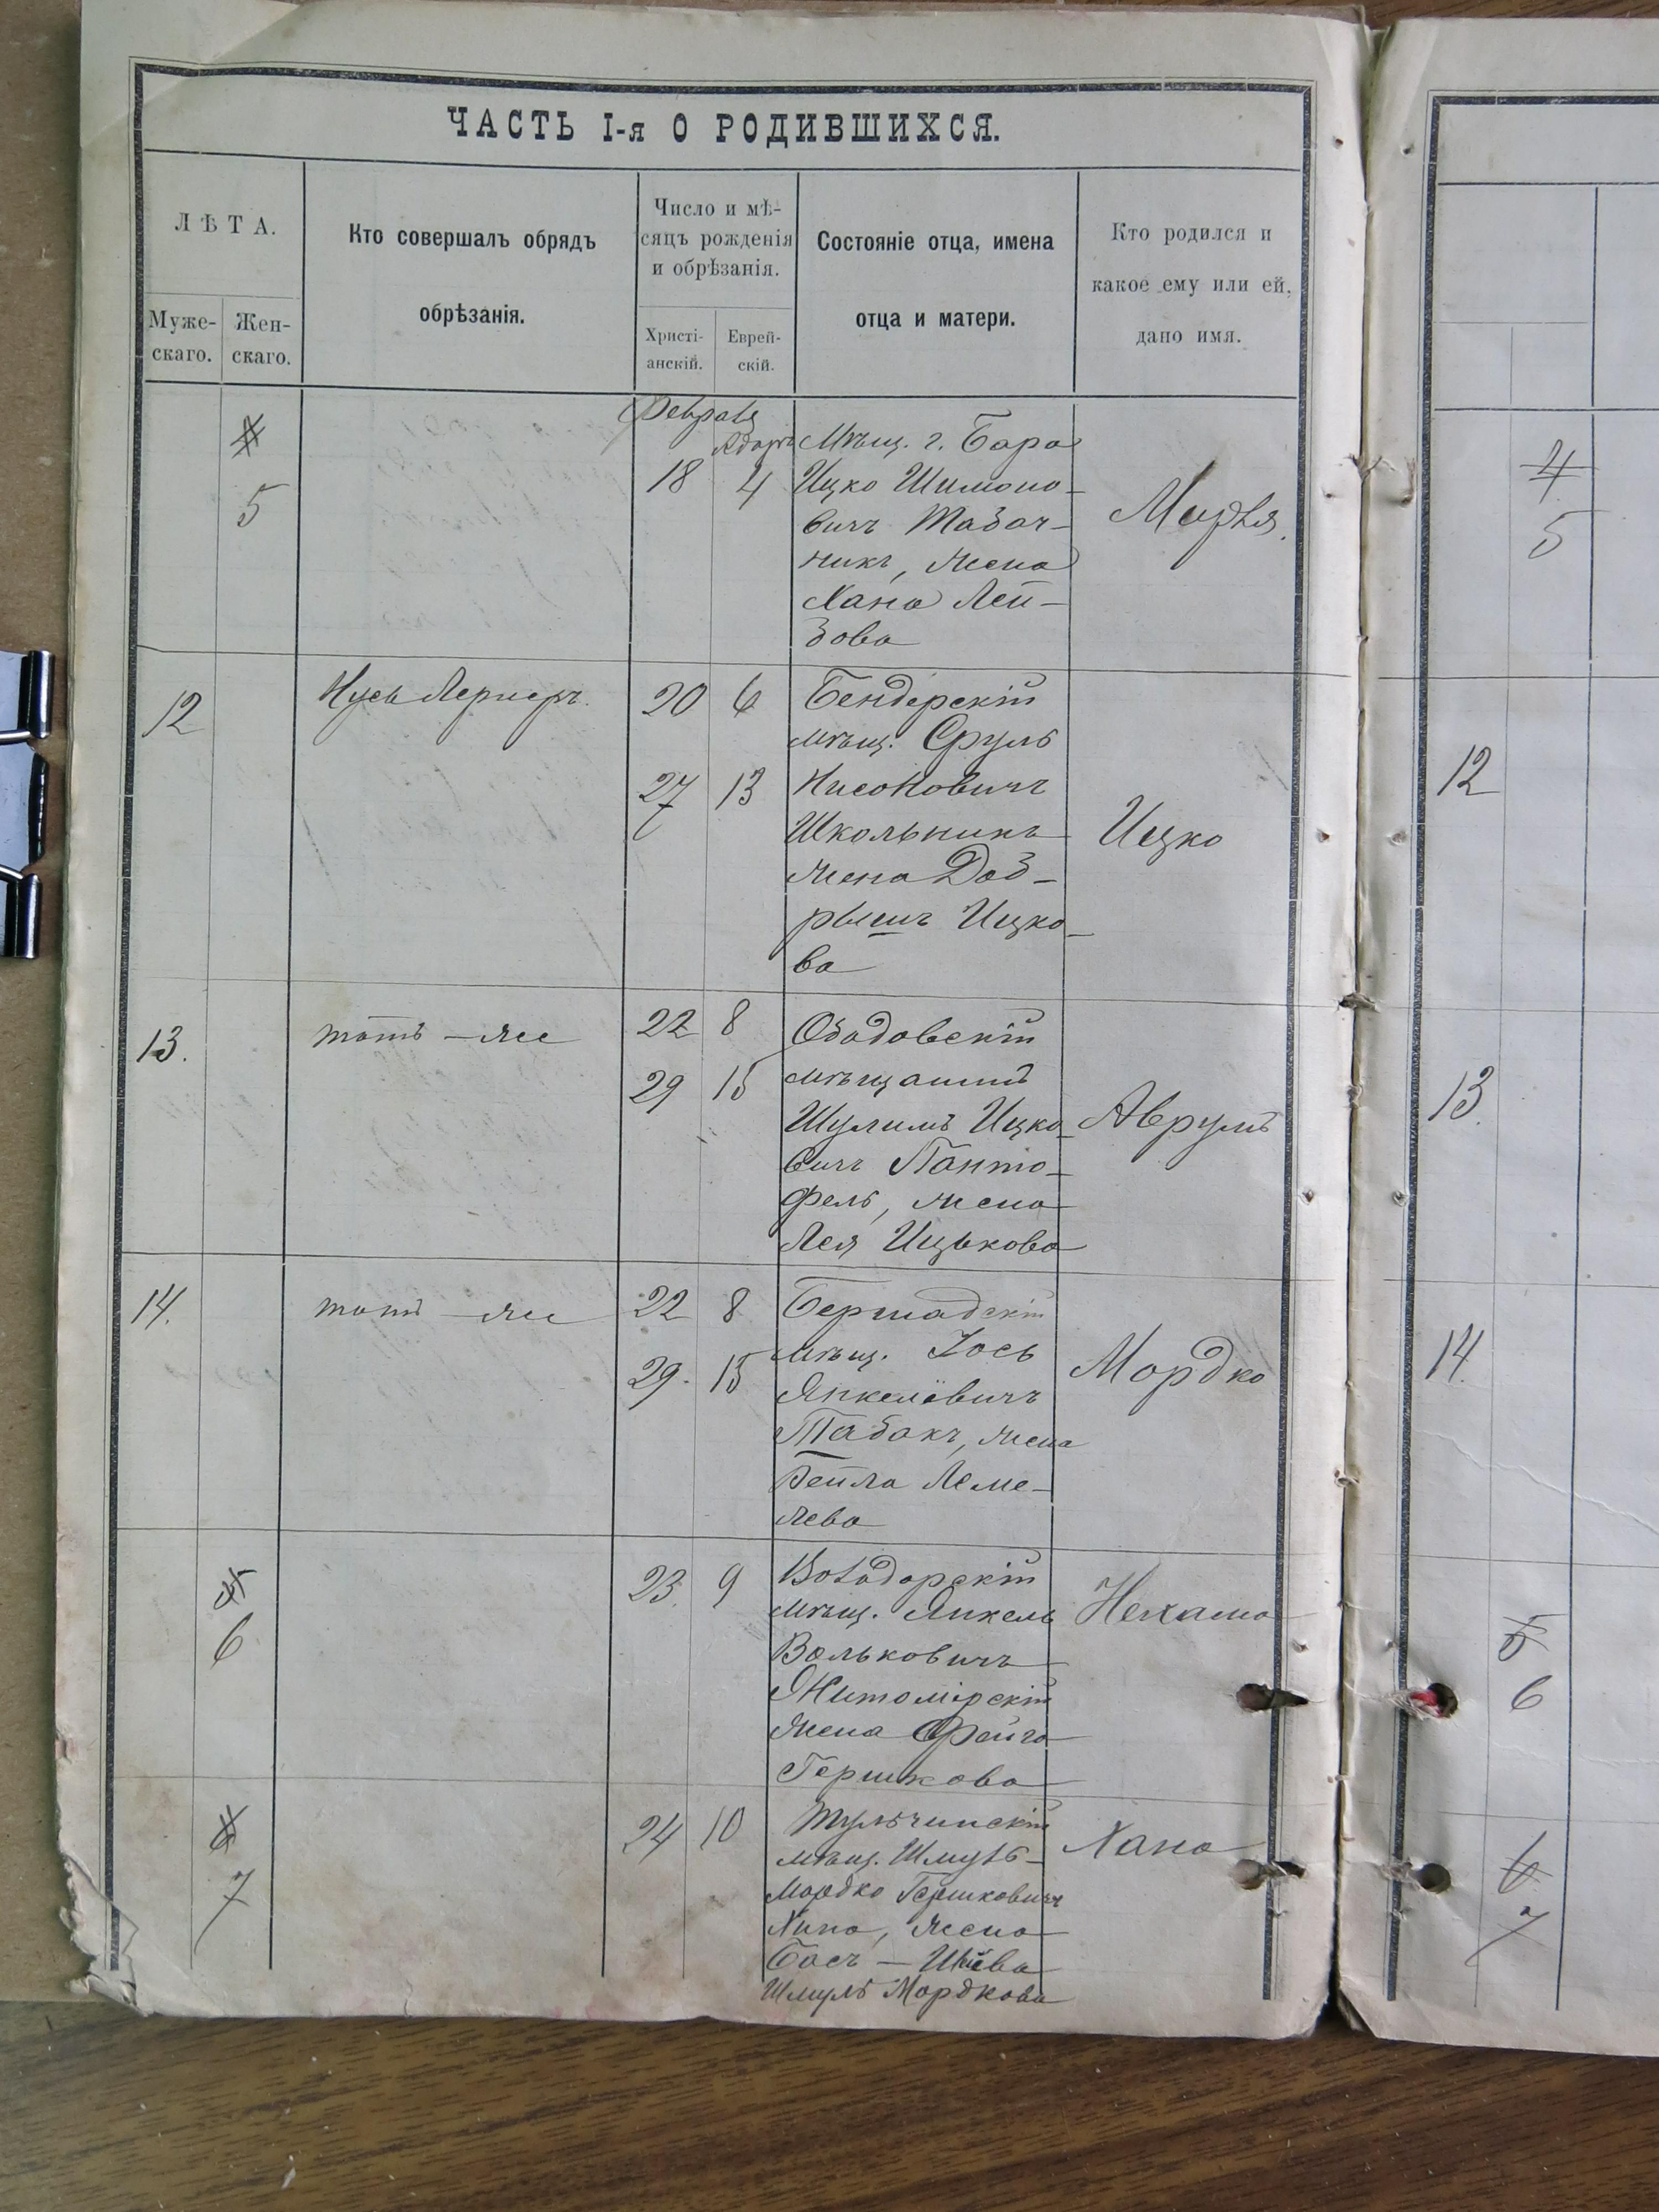 ЧАСТЬ I-я О РОДИВШИХСЯ.
ЛѢТА.
Муже-
скаго.
Жен-
скаго.
Кто совершалъ обрядъ
обрѣзанія.
Число и мѣ-
сяцъ рожденія
и обрѣзанія.
Христі-
анскій.
Еврей-
скій.
Состояніе отца, имена
отца и матери.
Кто родился и
какое ему или ей,
дано имя.
Февраля
Адаръ
4
5
18 4
Мѣщ. г. Бара
Ицко Шимоно-
вичъ Табач-
никъ, жена
Хана Лей-
зова
Мирля.
12
Нусь Лернеръ.
20 6
27 13
Бендерскій
мѣщ. Сруль
Нисоновичъ
Школьникъ
жена Доб-
рышъ Ицко-
ва
Ицко
13.
тотъ-же
22 8
29 15
Ободовскій
мѣщанинъ
Шулимъ Ицко-
вичъ Панто-
фель, жена
Лея Ицькова
Аврумъ
14.
тотъ-же
22 8
29. 15
Бершадскій
мѣщ. Іось
Янкелевичъ
Табакъ, жена
Бейла Леме-
лева
Мордко
5
6
23. 9
мѣщ. Янкель
Вольковичъ
Житомірскій
жена Фейга
Гершкова
Нехама
6
7
24 10
Тульчинскій
мѣщ. Шмуль-
Мордко Гершковичъ
жена
Бася-
Шмуль Мордкова
Хана
4
5
12
13.
14.
5
6
6
7